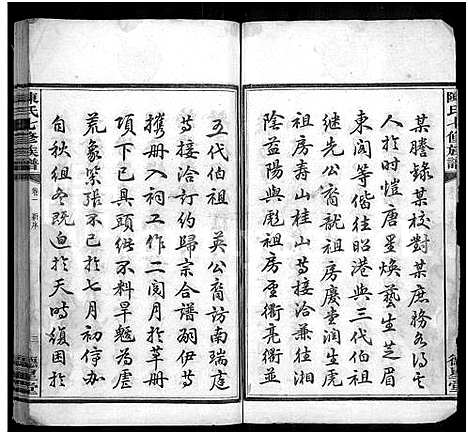 陳氏七修族譜
某謄錄某校對某庶務各得其
人於時愷唐星煥藝生芝眉
東閣等偕佳昭港與三代伯祖
繼先公裔就祖房慶堂潤生虎
祖房壽山桂山等接洽兼往湘
陰益陽與祖房雲亮衢立並
五代伯祖 英公裔訪南瑞庭
等接洽訂約歸宗合譜嗣伊等
攜册入祠工作二閱月於草册
項下已具頭緒不料旱魃為虐
荒象縈張不已於七月初停办
自秋徂冬既迫於天時復困於
陳氏七修族譜
卷一 新序
三